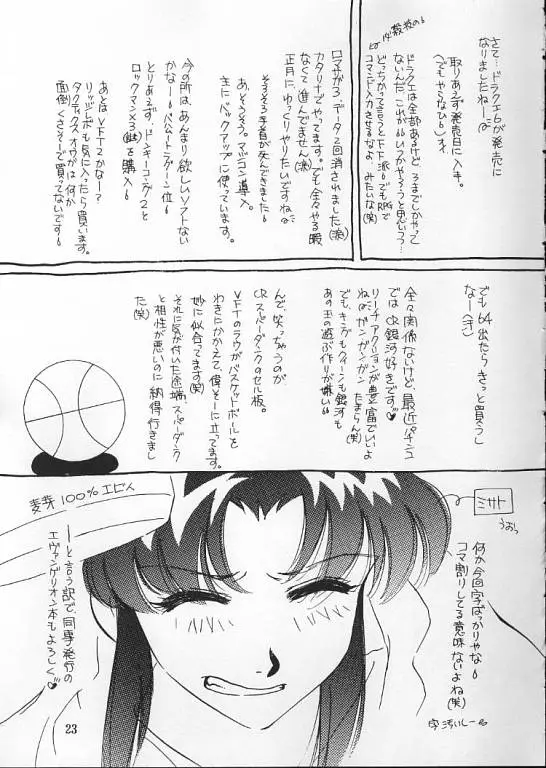 さて…ドラクエ6が発売に
なりましたねー
取りあえず発売日に入手。
(でもやらなひ)オイ
ドラクエは全部あるけど3までしかやって
ないんだ これが いつかやろうと思いつつ…
どっちかって言うとFF派 でもRPGで
コマンド入力させるなよ みたいな(笑)
ロマサガ3 データ2回消されました(涙)
カタリナでやってます。でも全々やる暇
なくて進んでません(涙)
正月に、ゆっくりやりたいですね
そろそろ予算が死んできました
あ、そろそろ。マジコン導入。
主にバックアップに使っています。
今の所は、あんまり欲しいソフトない
かなー バハムートラグーン位
とりあえず、ドンキーコング2と
ロックマンX3(謎)を購入
あとはVFT2かなー?
リッジレボも気に入ったら買います。
タクティクスオウガは何か
面倒くさそーで買ってないです
でも64出たらきっと買うし
なー(汗)
全々関係ないけど、最近パチンコ
ではCR銀河好きです♥
リーチアクションが豊富でいいよ
ねガンガンガン たまらん(笑)
でも、キングもクイーンも銀河も
あの玉の遊ぶ作りが嫌い
んで、笑っちゃうのが
CRスーパーダンクのセル板。
VFTのラウがバスケットボールを
わきにかかえて、偉そーに立ってます。
妙に似合ってます(笑)
それに気が付いた途端、スーパーダンク
と相性が悪いのに納得行きまし
た(笑)
ミサト
うおっ
何か今回字ばっかりやな
コマ割りしてる意味ないよね(笑)
字汚いしーる
麦芽100%エビス
ーーと言う訳で、同時発行の
エヴァンゲリオン本もよろしく♥
23